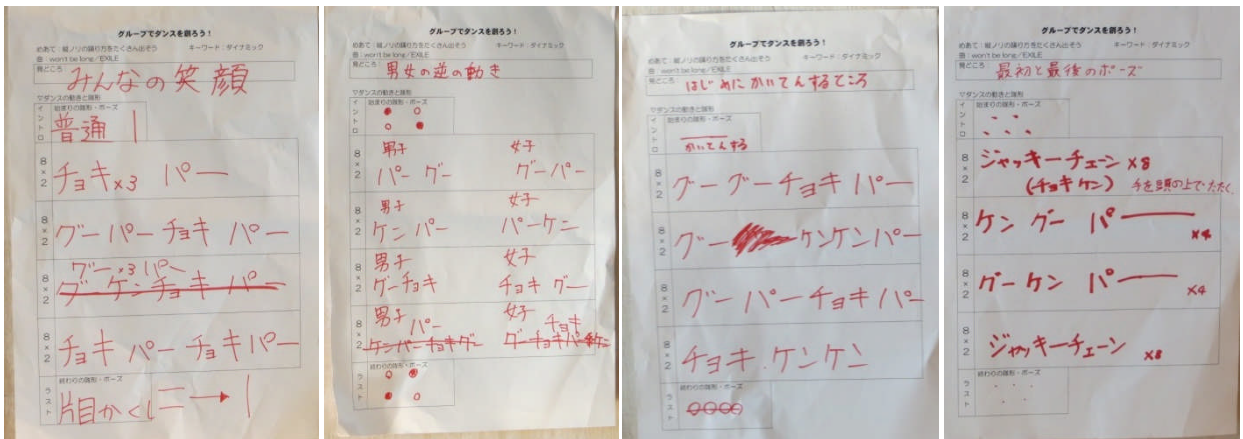 グループでダンスを創ろう！
めあて：縦ノリの踊り方をたくさん出そう　キーワード：ダイナミック
曲：won't be long／EXILE
見どころ：みんなの笑顔
▽ダンスの動きと隊形
イントロ
始まりの隊形・ポーズ
普通
8×2 チョキ×3 パー
8×2 グーパーチョキ パー
8×2 グー×3パー
グー ケンチョキ パー
8×2 チョキ パーチョキパー
ラスト
終わりの隊形・ポーズ
片目かくし
グループでダンスを創ろう！
めあて：縦ノリの踊り方をたくさん出そう　キーワード：ダイナミック
曲：won't be long／EXILE
見どころ：男女の逆の動き
▽ダンスの動きと隊形
イントロ
始まりの隊形・ポーズ
男子 女子
8×2 パー グー グーパー
男子 女子
8×2 ケンパー パーケン
男子 女子
8×2 グーチョキ チョキ グー
男子 パー 女子 チョキ
8×2 ケンパーチョキグー グーチョキパー
ラスト
終わりの隊形・ポーズ
グループでダンスを創ろう！
めあて：縦ノリの踊り方をたくさん出そう　キーワード：ダイナミック
曲：won't be long／EXILE
見どころ：はじめにかいてんするところ
▽ダンスの動きと隊形
イントロ
始まりの隊形・ポーズ
かいてんする
8×2 グーグーチョキ パー
8×2 グー ケンケンパー
8×2 グー パーチョキパー
8×2 チョキ.ケンケン
ラスト
終わりの隊形・ポーズ
グループでダンスを創ろう！
めあて：縦ノリの踊り方をたくさん出そう　キーワード：ダイナミック
曲：won't be long／EXILE
見どころ：最初と最後のポーズ
▽ダンスの動きと隊形
イントロ
始まりの隊形・ポーズ
8×2 ジャッキーチェーン ×8
(チョキケン) 手を頭の上でたたく
8×2 ケン グー パー ×4
8×2 グーケン パー ×4
8×2 ジャッキーチェーン ×8
ラスト
終わりの隊形・ポーズ